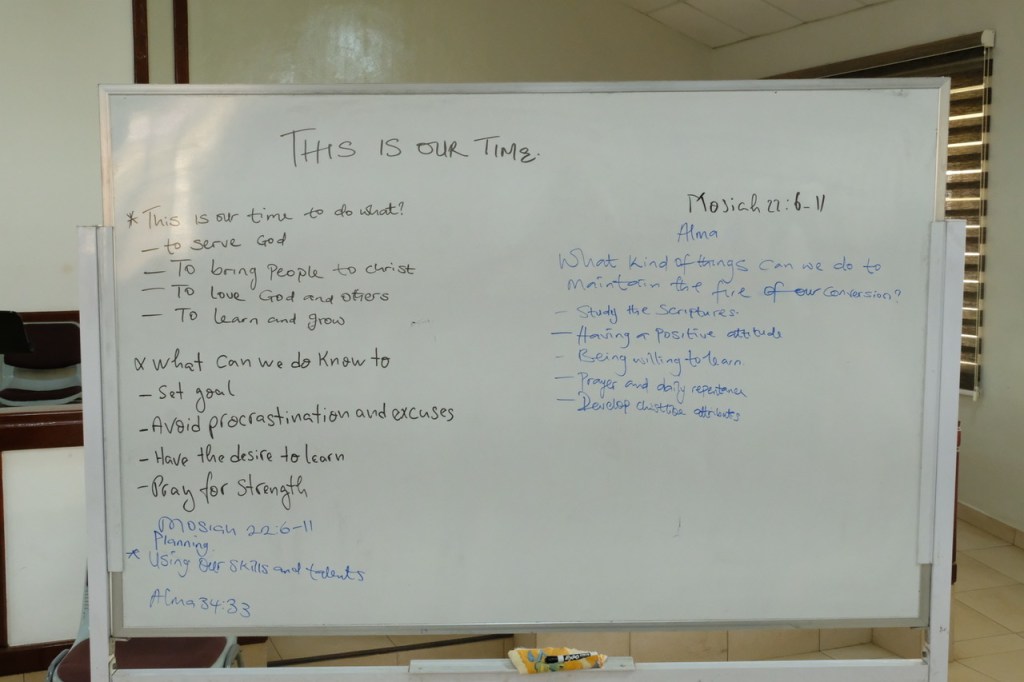 THIS IS OUR TIME.
* This is our time to do what?
- to serve God
- To bring People to Christ
- To love God and others
- To learn and grow
* What can we do know to
- Set goal
- Avoid procrastination and excuses
- Have the desire to learn
- Pray for Strength
Mosiah 22:6-11
Planning
* Using our skills and talents
Alma 34:33
Mosiah 22:6-11
Alma
What kind of things can we do to
Maintain the fire of our conversion?
- Study the Scriptures.
- Having a Positive attitude
- Being willing to learn.
- Prayer and daily repentance
- Develop attributes